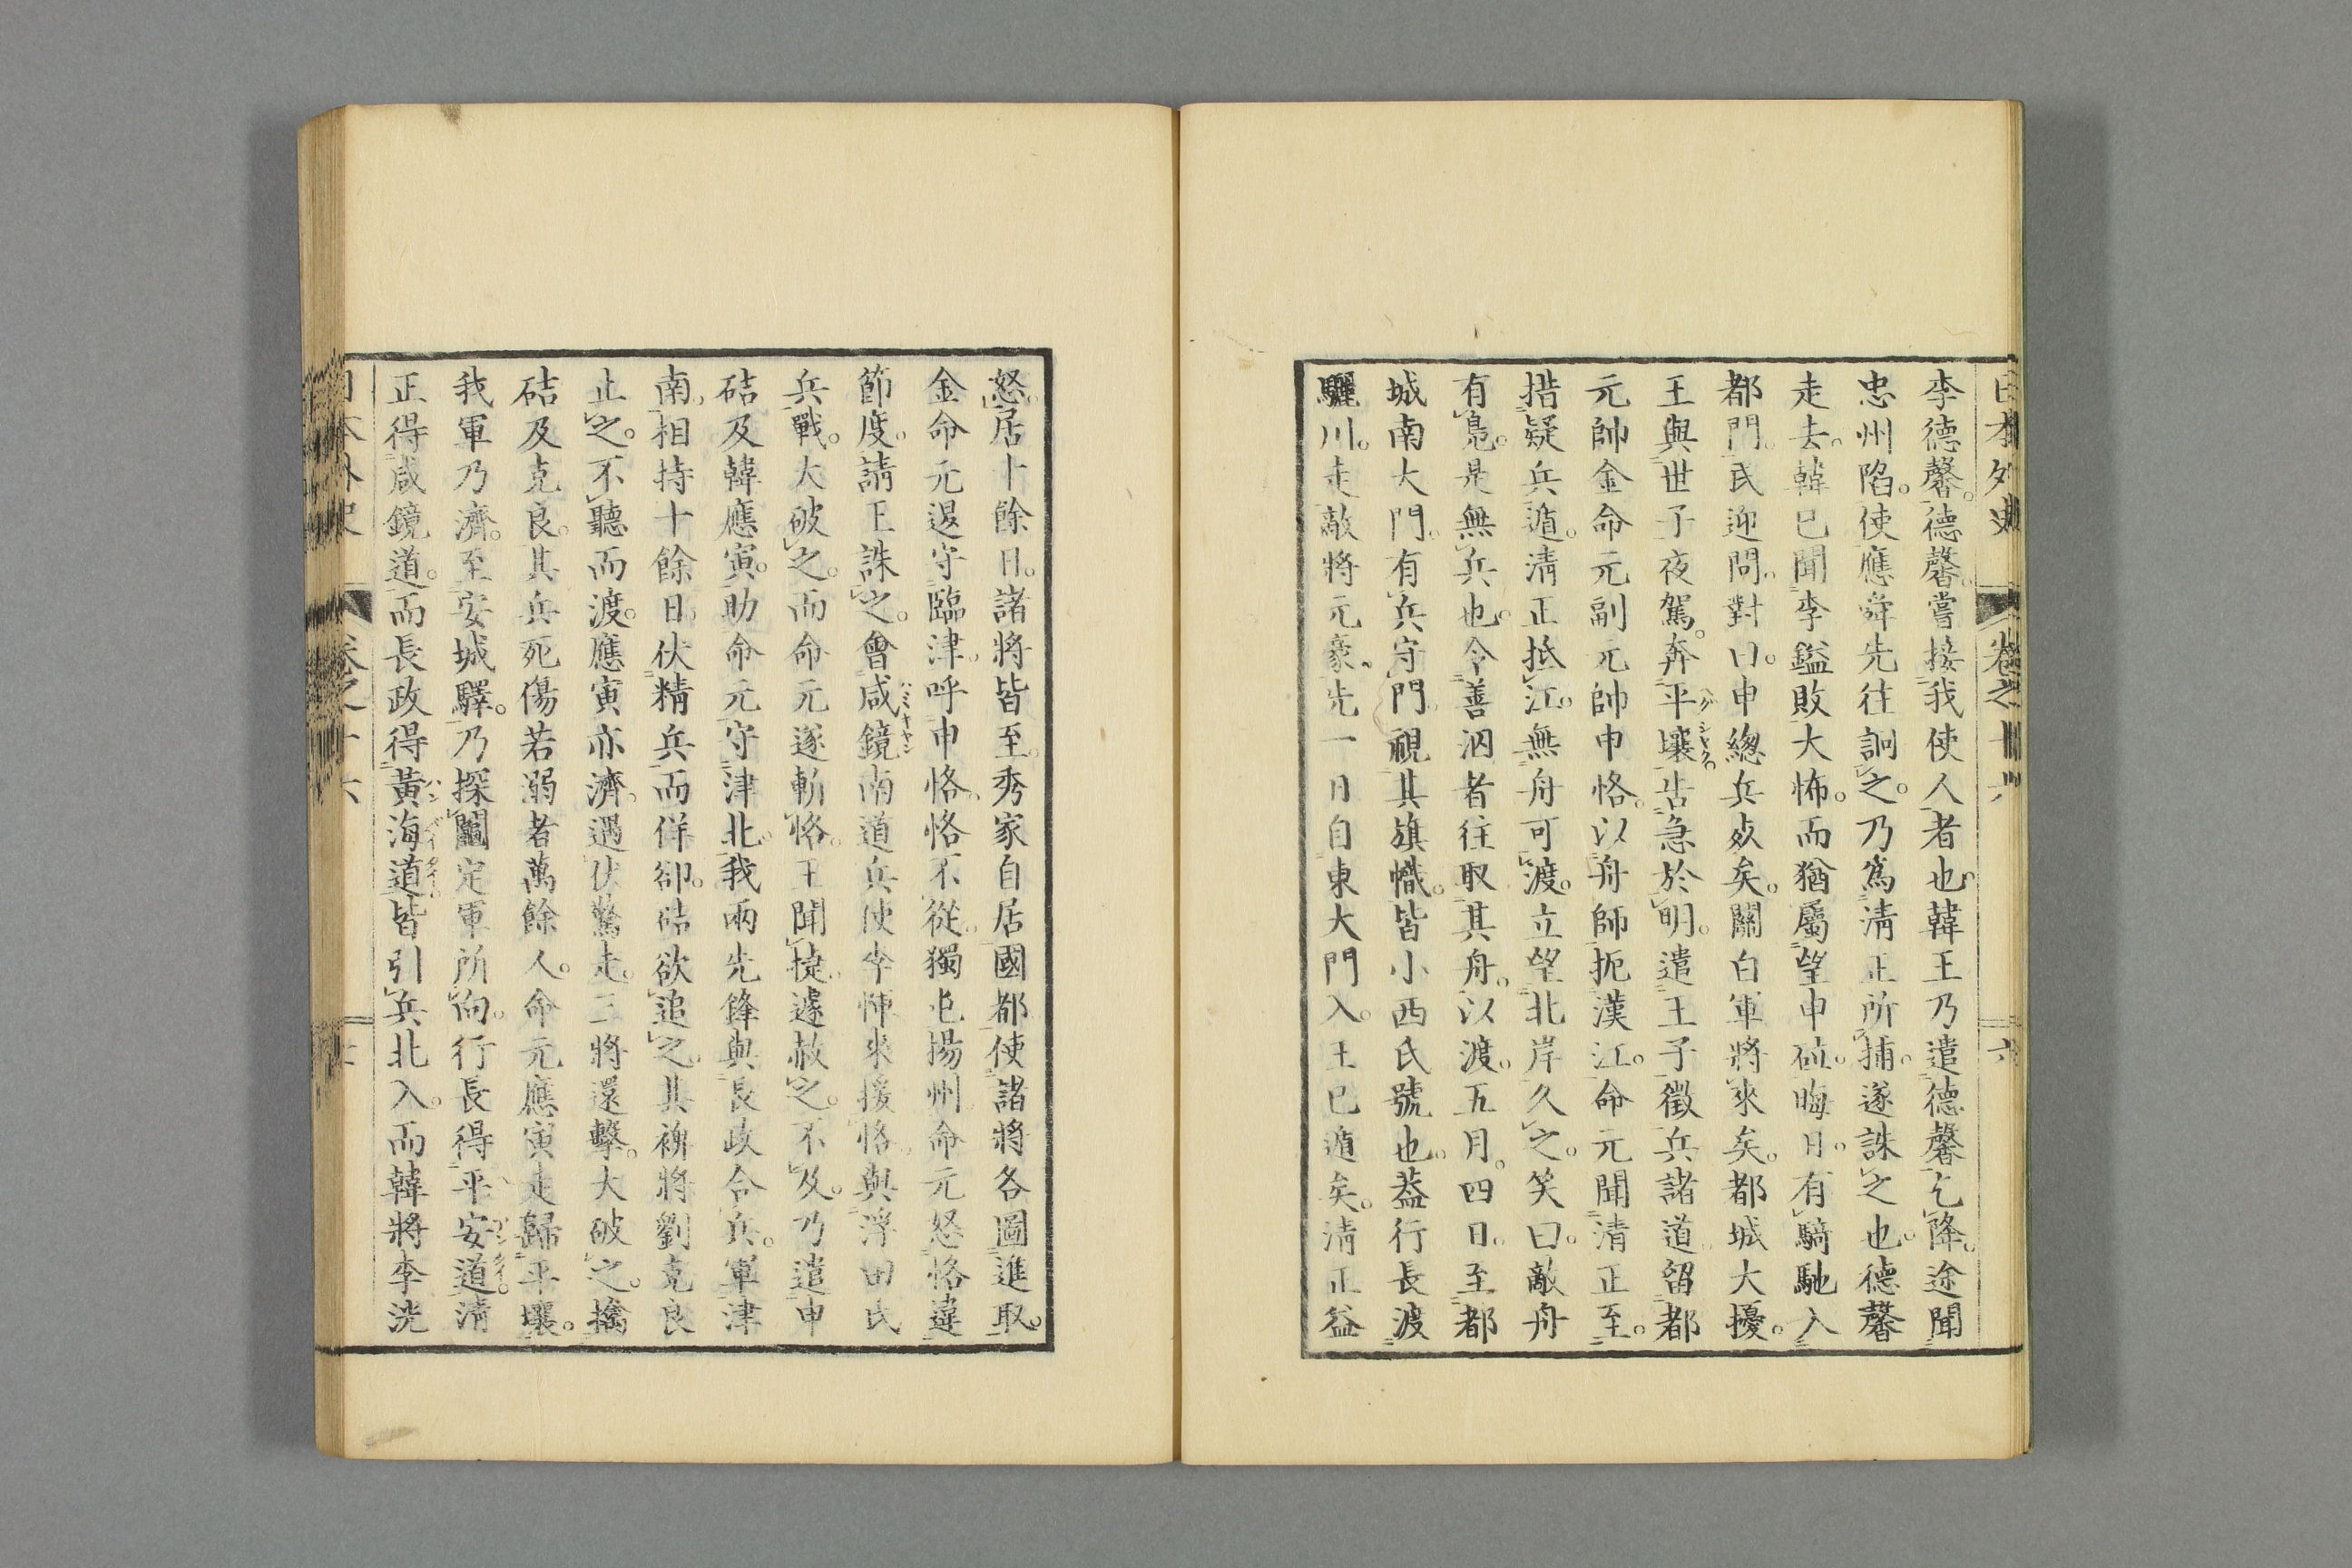 日本外史 卷之十六 六
李德馨。德馨嘗接我使人者也。韓王乃遣德馨乞降。途聞
忠州陷。使應舜先往詗之。乃爲淸正所捕。遂誅之也。德馨
走去。韓已聞李鎰敗大怖。而猶屬望申砬。晦日。有騎馳入
都門。民迎問。對曰。申總兵㱙矣。關白軍將來矣。都城大擾。
王與世子夜駕。奔平壤。告急於明。遣王子徵兵諸道。留都
元帥金命元副元帥申恪。以舟師扼漢江。命元聞清正至。
措疑兵遁。淸正抵江。無舟可渡。立望北岸久之。笑曰。敵舟
有鳧。是無兵也。令善泅者往取其舟。以渡。五月。四日。至都
城南大門。有兵守門。視其旗幟。皆小西氏號也。葢行長渡
驪川。走敵將元豪。先一日自東大門入。王已遁矣。淸正益
怒。居十餘日。諸將皆至。秀家自居國都。使諸將各圖進取。
金命元退守臨津。呼申恪。恪不從。獨屯揚州。命元怒恪違
節度。請王誅之。會咸鏡南道兵使李惲來援恪。與浮田氏
兵戰。大破之。而命元遂斬恪。王聞捷。遽赦之。不及。乃遣申
硈及韓應寅。助命元守津北。我兩先鋒與長政合兵。軍津
南。相持十餘日。伏精兵而佯卻。硈欲追之。其裨將劉克良
止之。不聽而渡。應寅亦濟。遇伏驚走。三將還擊。大破之。擒
硈及克良。其兵死傷若溺者萬餘人。命元應寅走歸平壤。
我軍乃濟。至安城驛。乃探鬮定軍所向。行長得平安道。淸
正得咸鏡道。而長政得黃海道。皆引兵北入。而韓將李洸
日本外史 卷之十六